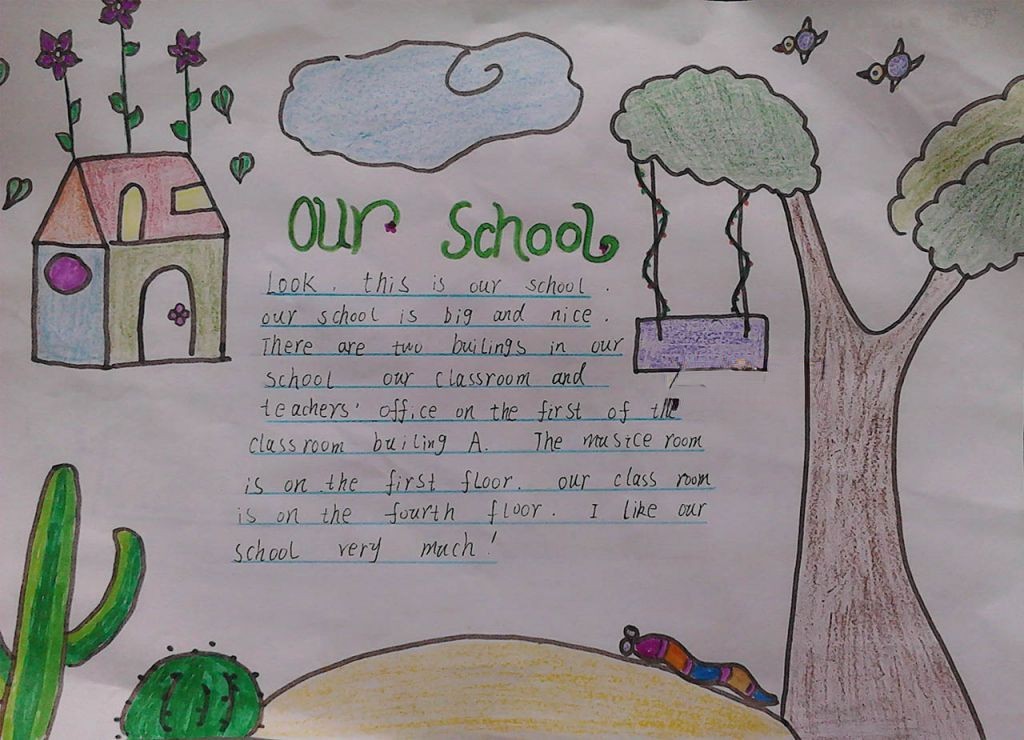 our School
Look. this is our school.
our school is big and nice.
There are two builings in our
school our classroom and
teachers' office on the first of the
classroom builing A. The musice room
is on the first floor. our class room
is on the fourth floor. I like our
school very much!